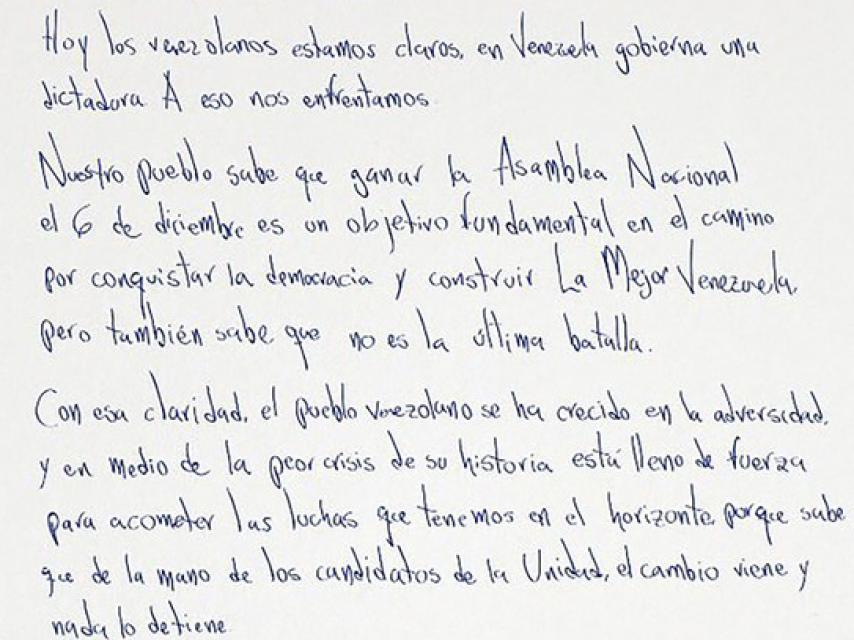 Hoy los venezolanos estamos claros, en Venezuela gobierna una
dictadura A eso nos enfrentamos.
Nuestro pueblo sabe que ganar la Asamblea Nacional
el 6 de diciembre es un objetivo fundamental en el camino
por conquistar la democracia y construir La Mejor Venezuela,
pero también sabe que no es la última batalla.
Con esa claridad, el pueblo venezolano se ha crecido en la adversidad,
y en medio de la peor crisis de su historia está lleno de fuerza
para acometer las luchas que tenemos en el horizonte, porque sabe
que de la mano de los candidatos de la Unidad, el cambio viene y
nada lo detiene.